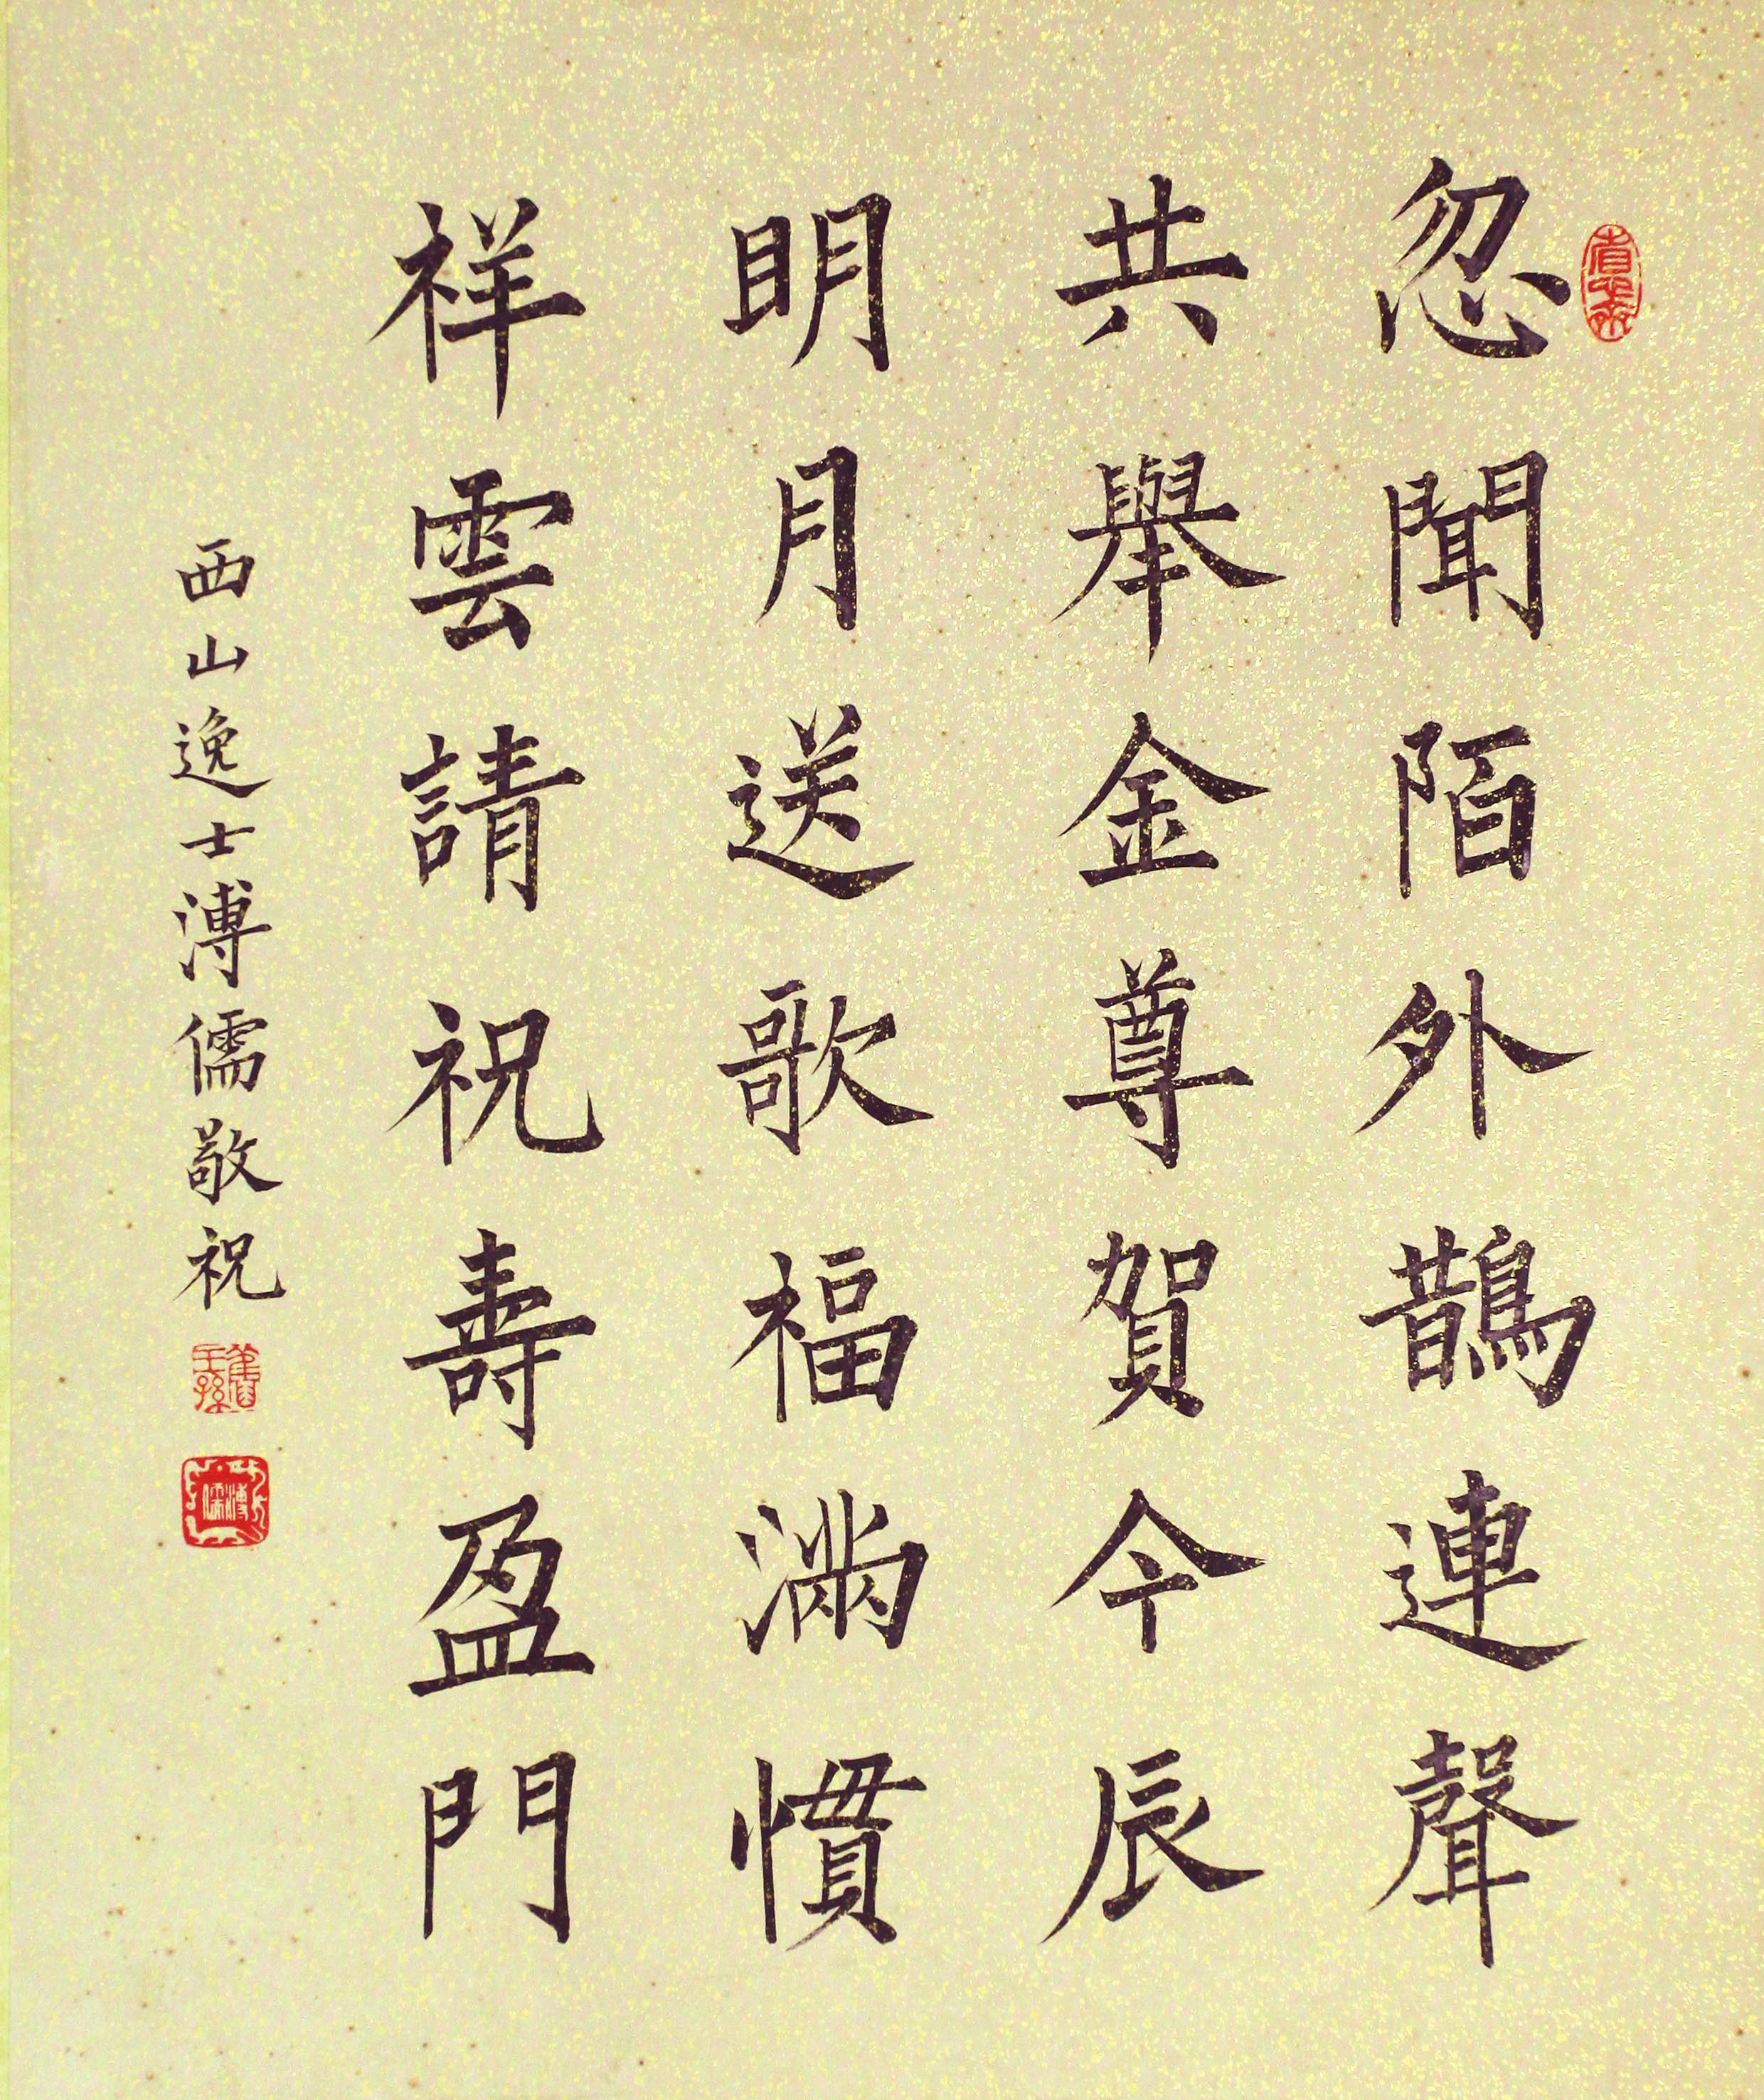 忽聞陌外鵲連聲
共舉金尊賀今辰
明月送歌福滿慣
祥雲請祝壽盈門
西山逸士溥儒敬祝
舊王孫
溥儒